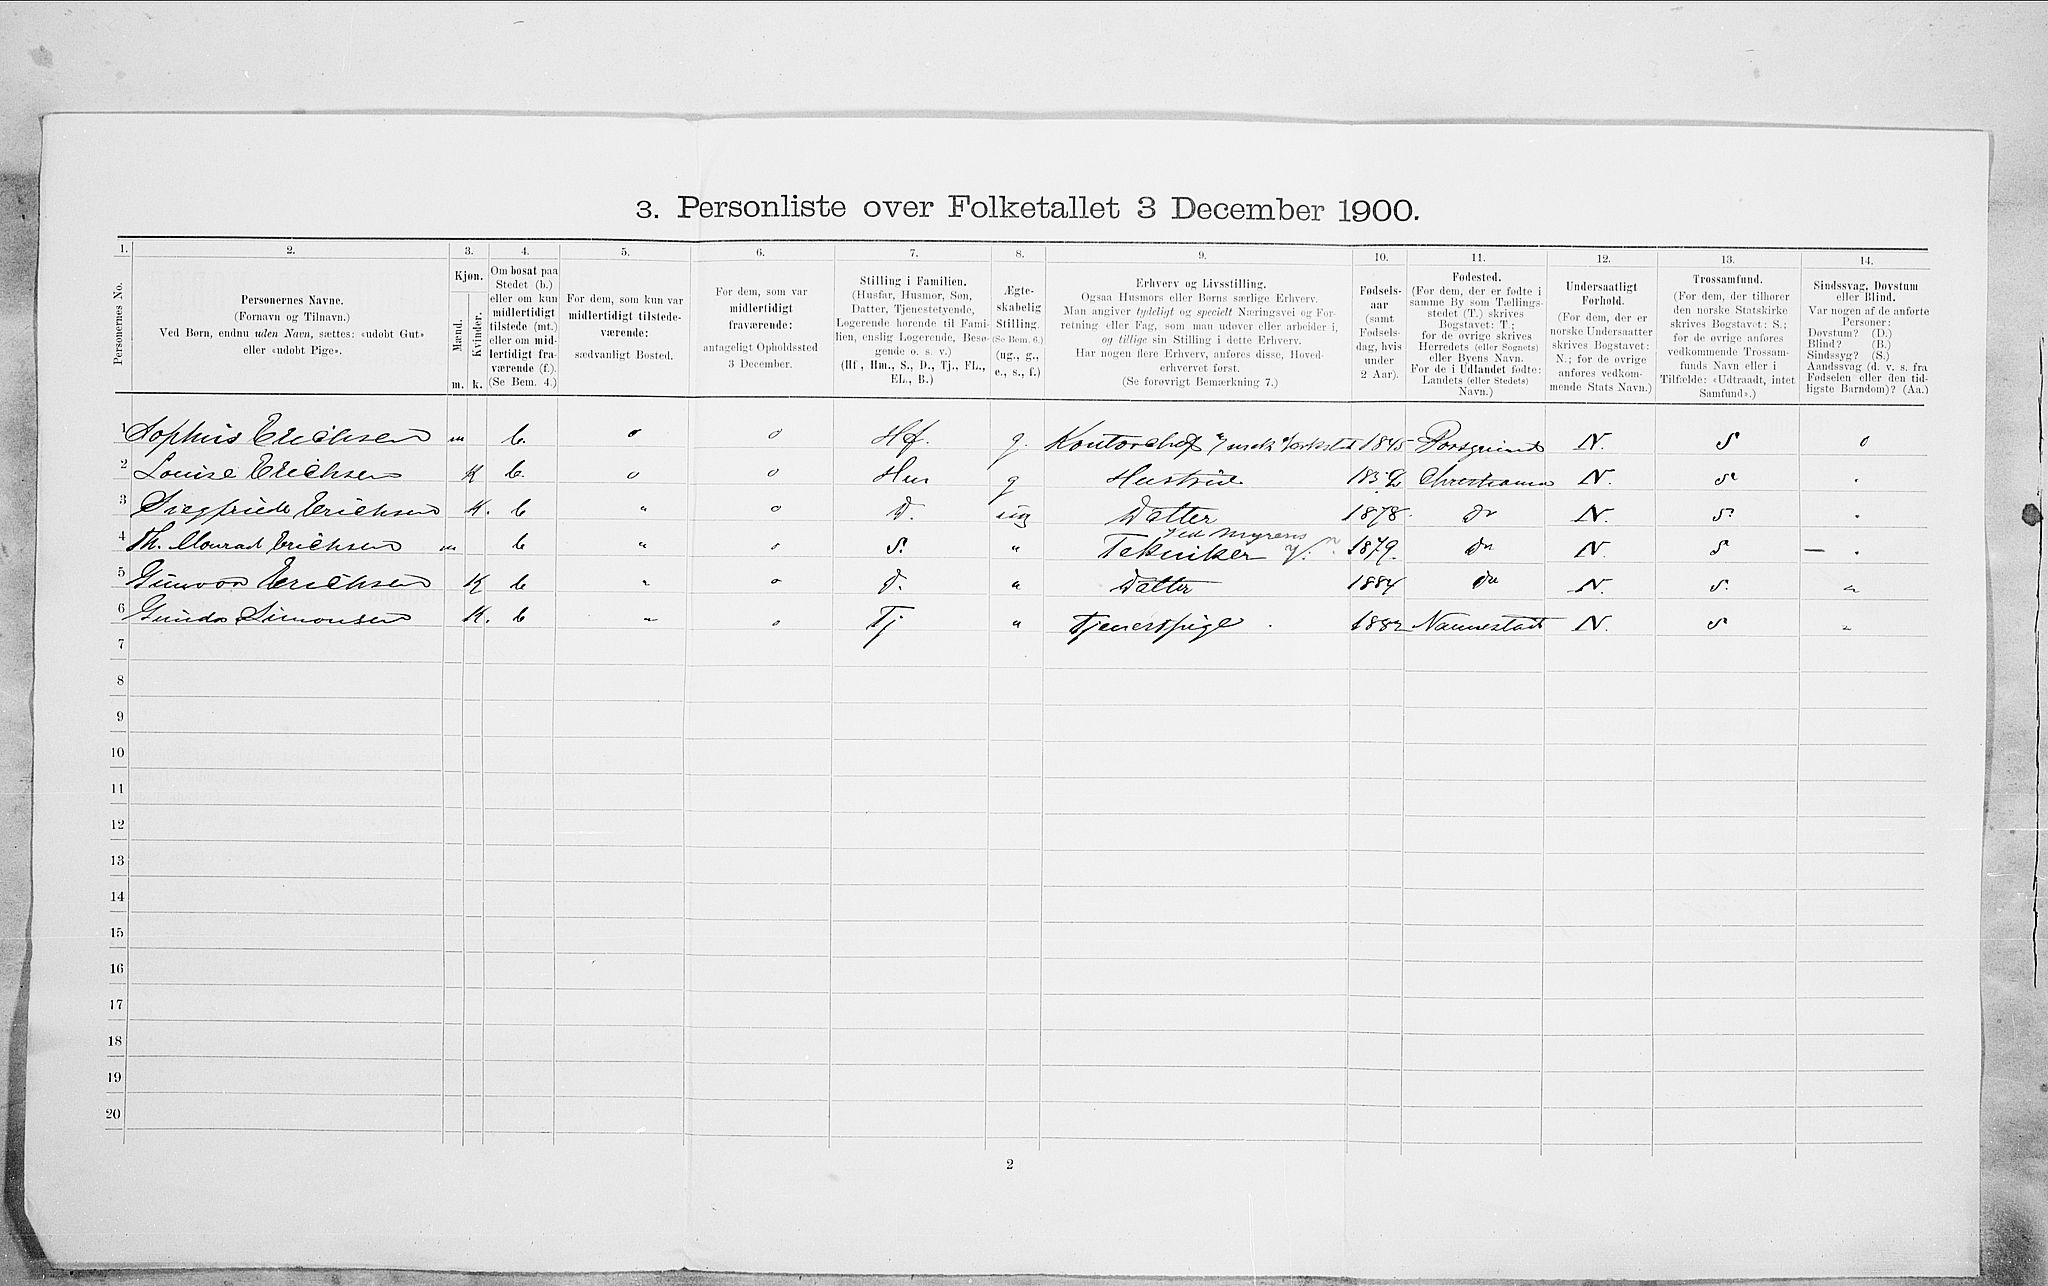 3. Personliste over Folketallet 3 December 1900.
1. 2. 3. 4. 5. 6. 7. 8. 9. 10. 11. 12. 13. 14.
Personernes No.
Personernes Navne.
(Fornavn og Tilnavn.)
Ved Børn, endnu uden Navn, sættes: «udøbt Gut»
eller «udøbt Pige».
Kjøn.
Mænd.
Kvinder.
m. k.
Om bosat paa
Stedet (b.)
eller om kun
midlertidigt
tilstede (mt.)
eller om mid-
lertidigt fra-
værende (f.).
(Se Bem. 4.)
For dem, som kun var
midlertidigt tilstede-
værende:
sædvanligt Bosted.
For dem, som var
midlertidigt
fraværende:
antageligt Opholdssted
3 December.
Stilling i Familien.
(Husfar, Husmor, Søn,
Datter, Tjenestetyende,
Logerende hørende til Fami-
lien, enslig Logerende, Besø-
gende o. s. v.)
(Hf, Hm., S., D., Tj., FL.,
EL., B.)
Ægte-
skabelig
Stilling.
(Se Bem. 6.)
(ug., g.,
e., s., f.)
Erhverv og Livsstilling.
Ogsaa Husmors eller Børns særlige Erhverv.
Man angiver tydeligt og specielt Næringsvei og For-
retning eller Fag, som man udøver eller arbeider i,
og tillige sin Stilling i dette Erhverv.
Har nogen flere Erhverv, anføres disse, Hoved-
erhvervet først.
(Se forøvrigt Bemærkning 7.)
Fødsels-
aar
(samt
Fødsels-
dag, hvis
under
2 Aar).
Fødested.
(For dem, der er fødte i
samme By som Tællings-
stedet (T.) skrives
Bogstavet: T.;
for de øvrige skrives
Herredets (eller Sognets)
eller Byens Navn.
For de i Udlandet fødte:
Landets (eller Stedets)
Navn.)
Undersaatligt
Forhold.
(For dem, der er
norske Undersaatter
skrives Bogstavet:
N.; for de øvrige
anføres vedkom-
mende Stats Navn.)
Trossamfund.
(For dem, der tilhører
den norske Statskirke
skrives Bogstavet: S.;
for de øvrige anføres
vedkommende Trossam-
funds Navn eller i
Tilfælde: «Udtraadt, intet
Samfund».)
Sindssvag, Døvstum
eller Blind.
Var nogen af de anførte
Personer:
Døvstum? (D.)
Blind? (B.)
Sindssyg? (S.)
Aandssvag (d. v. s. fra
Fødselen eller den tid-
ligste Barndom)? (Aa.)
1 Sophus Erichsen m b. o o Hf. g. Kontorchef 1845 Porsgrund N. S o
2 Louise Erichsen K b. o o Hu g Hustrue Christiania N. S .
3 Siegfriede Erichsen K. b " o D. ug Datter 1878. do N. S. .
4 Th. Monrad Erichsen m b " o S. " Tekniker ved Myrens V. 1879. do N. S — .
5 Gunvor Erichsen K b " o D. " Datter 1884 do N. S. "
6 Gunda Simonsen K. b " o Tj " Tjenestpige. 1882 Nannestad N. S "
7
8
9
10
11
12
13
14
15
16
17
18
19
20
2